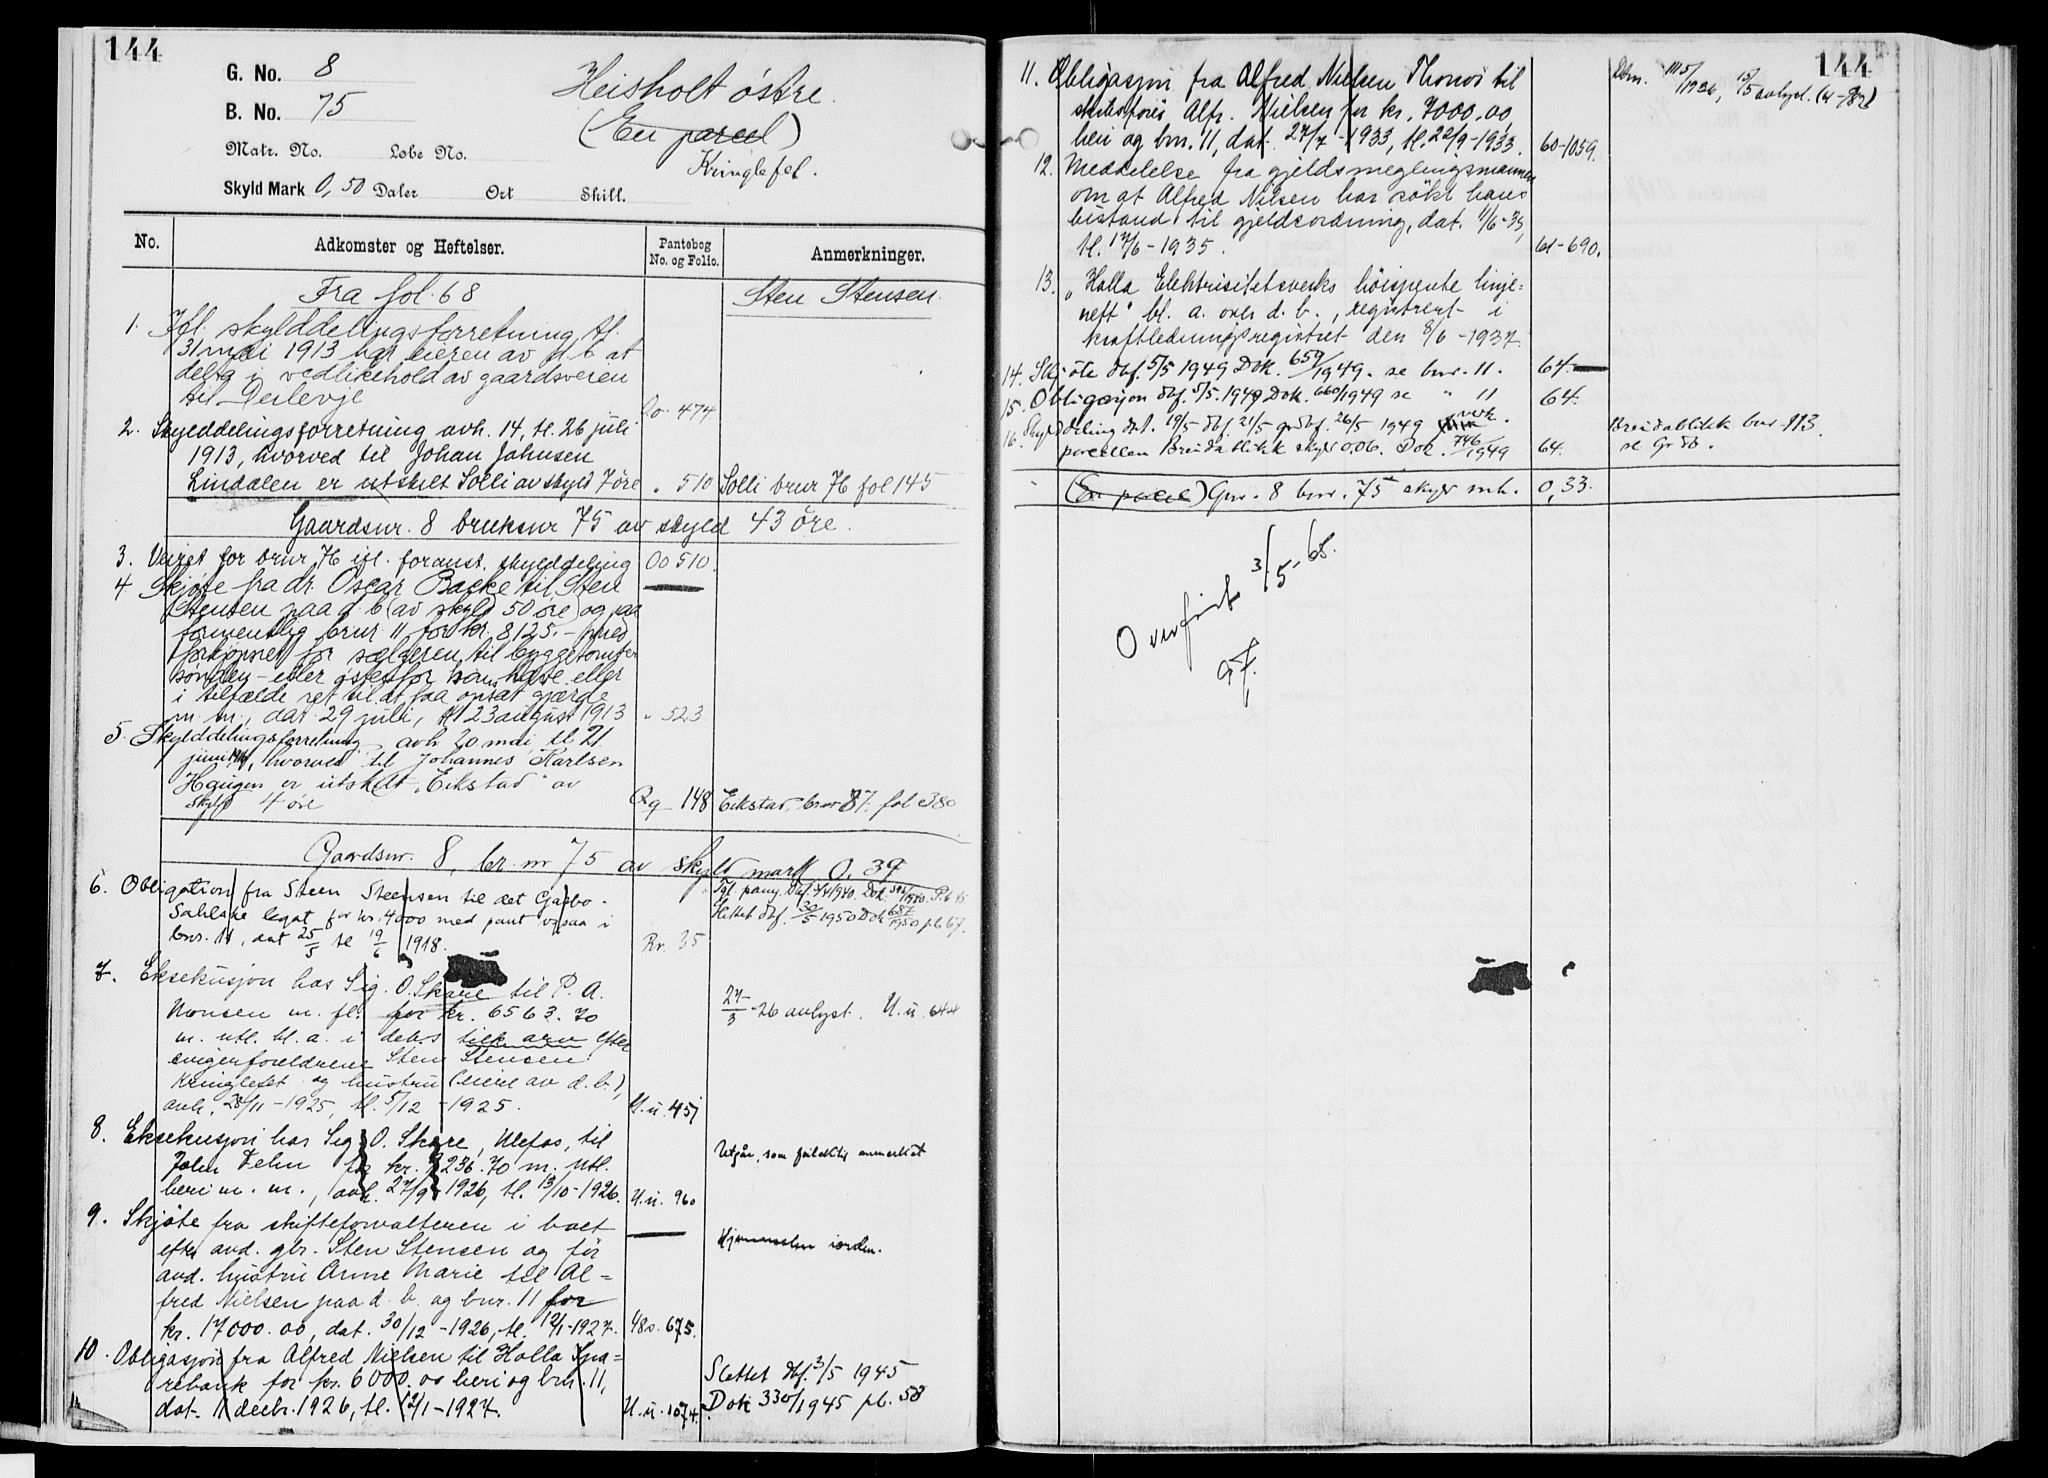 144
G. No. 8
B. No. 75
Matr. No. Løbe No.
Skyld Mark 0,50 Daler Ort Skill.
Heisholt østre.
(En parcel)
Kringlefet.
No. Adkomster og Heftelser. Pantebog No. og Folio. Anmerkninger.
Fra fol. 68 Sten Stensen.
1. Ifl. skylddelingsforretning tl.
31 mai 1913 har eieren av d b at
delta i vedlikehold av gaardsveien
til Deilevje Oo 474
2. Skylddelingsforretning avh. 14, tl. 26 juli
1913, hvorved til Johan Johnsen
Lindalen er utskilt Solli av skyld 7 øre " 510 Solli brnr 76 fol 145
Gaardsnr. 8 bruksnr 75 av skyld 43 øre.
3. Veiret for brnr. 76 ifl. foranst. skylddeling Oo 510.
4 Skjøte fra dr. Oscar Backe til Sten
Stensen paa d. b (av skyld 50 øre) og paa
formentlig brnr 11 for kr. 8125.- med
forkjøpsret for sælgeren til byggetomter
sønden- eller østenfor hans have eller
i tilfælde ret til at faa opsat gjærde
m. m., dat. 29 juli, tl 23 august 1913 " 523
5. Skylddelingsforretning avh 20 mai, tl 21
juni, hvorved til Johannes Karlsen
Haugen er utskilt "Eikstad" av
skyld 4 øre Qq 148 Eikstad, brnr 87. fol 380
Gaardsnr. 8, br. nr 75 av skyld mark 0.39
6. Obligation fra Steen Steensen til det Gasbo-
Sahlske legat for kr. 4000 med pant ogsaa i
bnr. 11, dat 25/5 tl 19/6 1918. Rr. 35
Slettet dbf. 30/5 1950 Dok 687/1950 pb 67.
7. Eksekusjon hos Sig. O. Skare til P. A.
Monsen m. fl. for kr. 6563.70
m. utl. bl. a. i debs tilk. arv efter
svigerforeldrene Sten Stensen
Kringlefet og hustru (eiere av d. b.),
avh. 28/11 - 1925, tl. 5/12 - 1925. U.u. 451
27/3 - 26 avlyst. U.u. 644
8. Eksekusjon hos Sig. O. Skare, Ulefos, til
John Dehn for kr. 236.70 m. utl.
heri m. m., avh. 27/9 - 1926, tl. 13/10 - 1926. U.u. 960
Utgår, som feilaktig anmerket
9. Skjøte fra skifteforvalteren i boet
efter avd. gbr. Sten Stensen og før
avd. hustru Anne Marie til Al=
fred Nielsen paa d. b. og bnr. 11 for
kr. 17000.00, dat. 30/12 - 1926, tl. 12/1 - 1927. 675.
Hjemmelen iorden.
10. Obligasjon fra Alfred Nielsen til Holla Spa=
rebank for kr. 6000.00 heri og bnr. 11,
dat. 11 decbr. 1926, tl. 12/1 - 1927. U.u. 1074.
Slettet dbf. 3/5 1945
Dok 330/1945 pb. 58
144
11. Obligasjon fra Alfred Nielsen Thonvi til
skibsfører Alfr. Nielsen for kr. 7000.00
heri og bnr. 11, dat. 27/7 - 1933, tl. 22/9 - 1933. 60-1059.
12. Meddelelse fra gjeldsmeglingsmannen
om at Alfred Nilsen har søkt hans
bistand til gjeldsordning, dat. 11/6 - 35,
tl. 17/6 - 1935. 61-690.
13. "Holla Elektrisitetsverks høispente linje=
nett" bl. a. over d. b., registrert i
kraftledningsregistret den 8/6 - 1937.
14. Skjøte dbf. 5/5 1949 Dok. 659/1949. se bnr. 11. 64.
15. Obligasjon dbf. 5/5. 1949 Dok. 660/1949 se " 11 64.
16. Skylddeling dat. 19/5 dbf 21/5 grdbf. 26/5 1949
parcellen Breidablikk skyld 0.06. Dok. 746/1949 64.
Breidablikk bnr 113.
se Grdb.
(En parcel) Gnr. 8 bnr. 75 skyld mk. 0,33.
Overført 3/5-65.